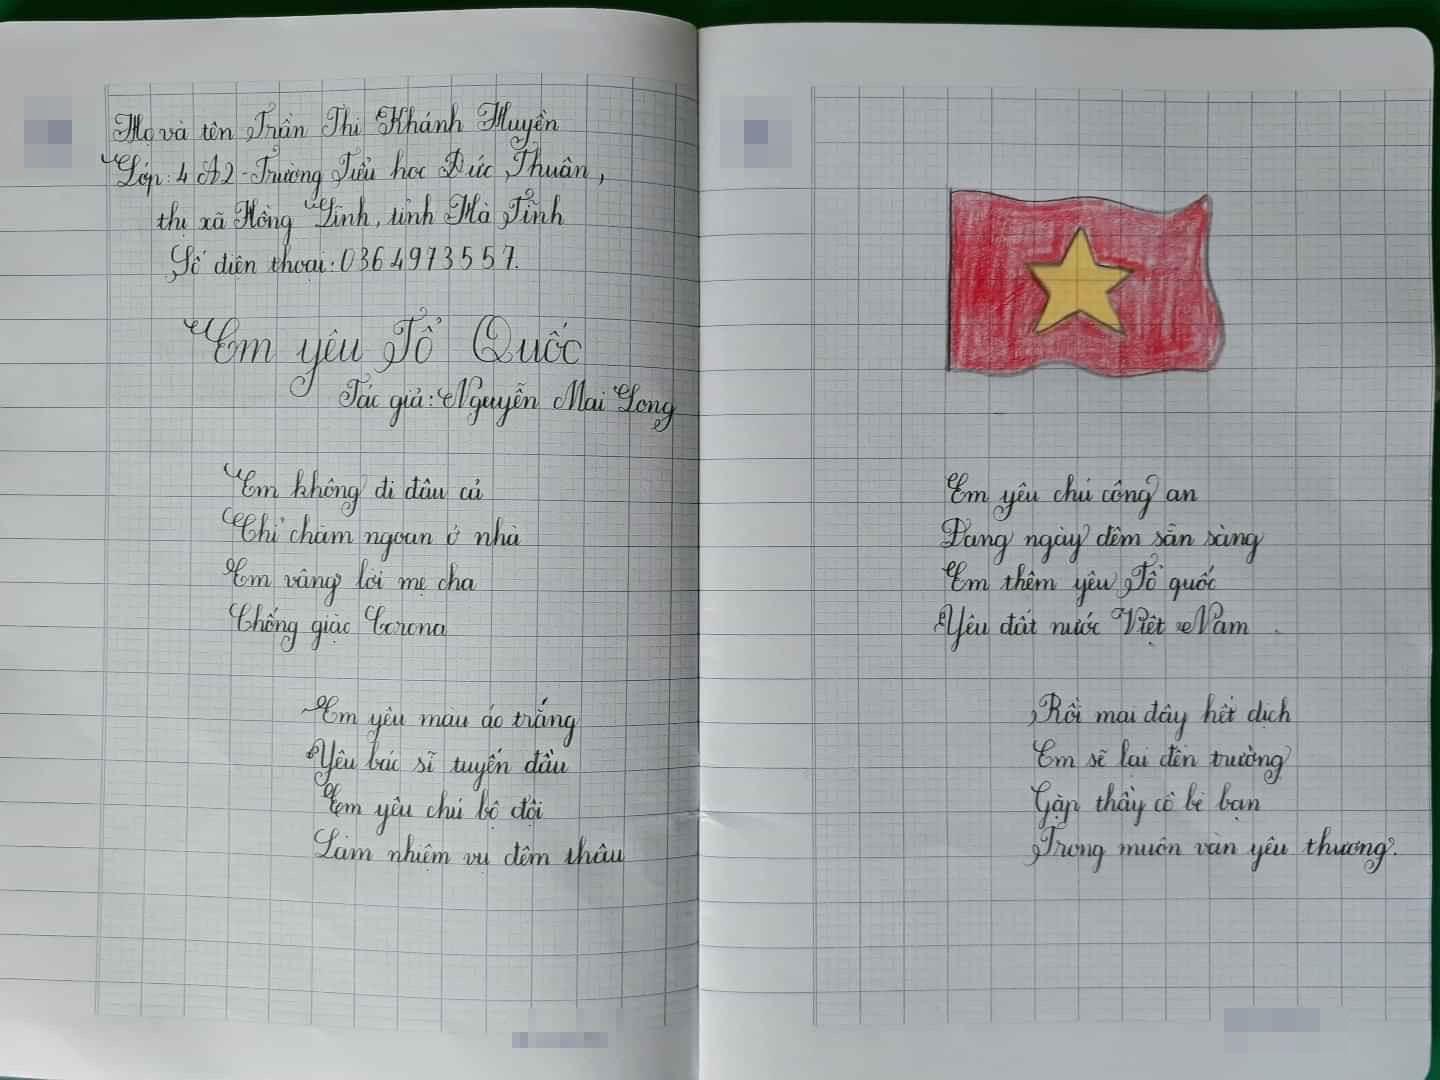 Họ và tên Trần Thị Khánh Huyền
Lớp: 4 A2 - Trường Tiểu học Đức Thuận,
thị xã Hồng Lĩnh, tỉnh Hà Tĩnh
Số điện thoại: 0364973557.
Em yêu Tổ Quốc
Tác giả: Nguyễn Mai Long
Em không đi đâu cả
Chỉ chăm ngoan ở nhà
Em vâng lời mẹ cha
Chống giặc Corona
Em yêu màu áo trắng
Yêu bác sĩ tuyến đầu
Em yêu chú bộ đội
Làm nhiệm vụ đêm thâu
Em yêu chú công an
Đang ngày đêm sẵn sàng
Em thêm yêu Tổ quốc
Yêu đất nước Việt Nam
Rồi mai đây hết dịch
Em sẽ lại đến trường
Gặp thầy cô bè bạn
Trong muôn vàn yêu thương.